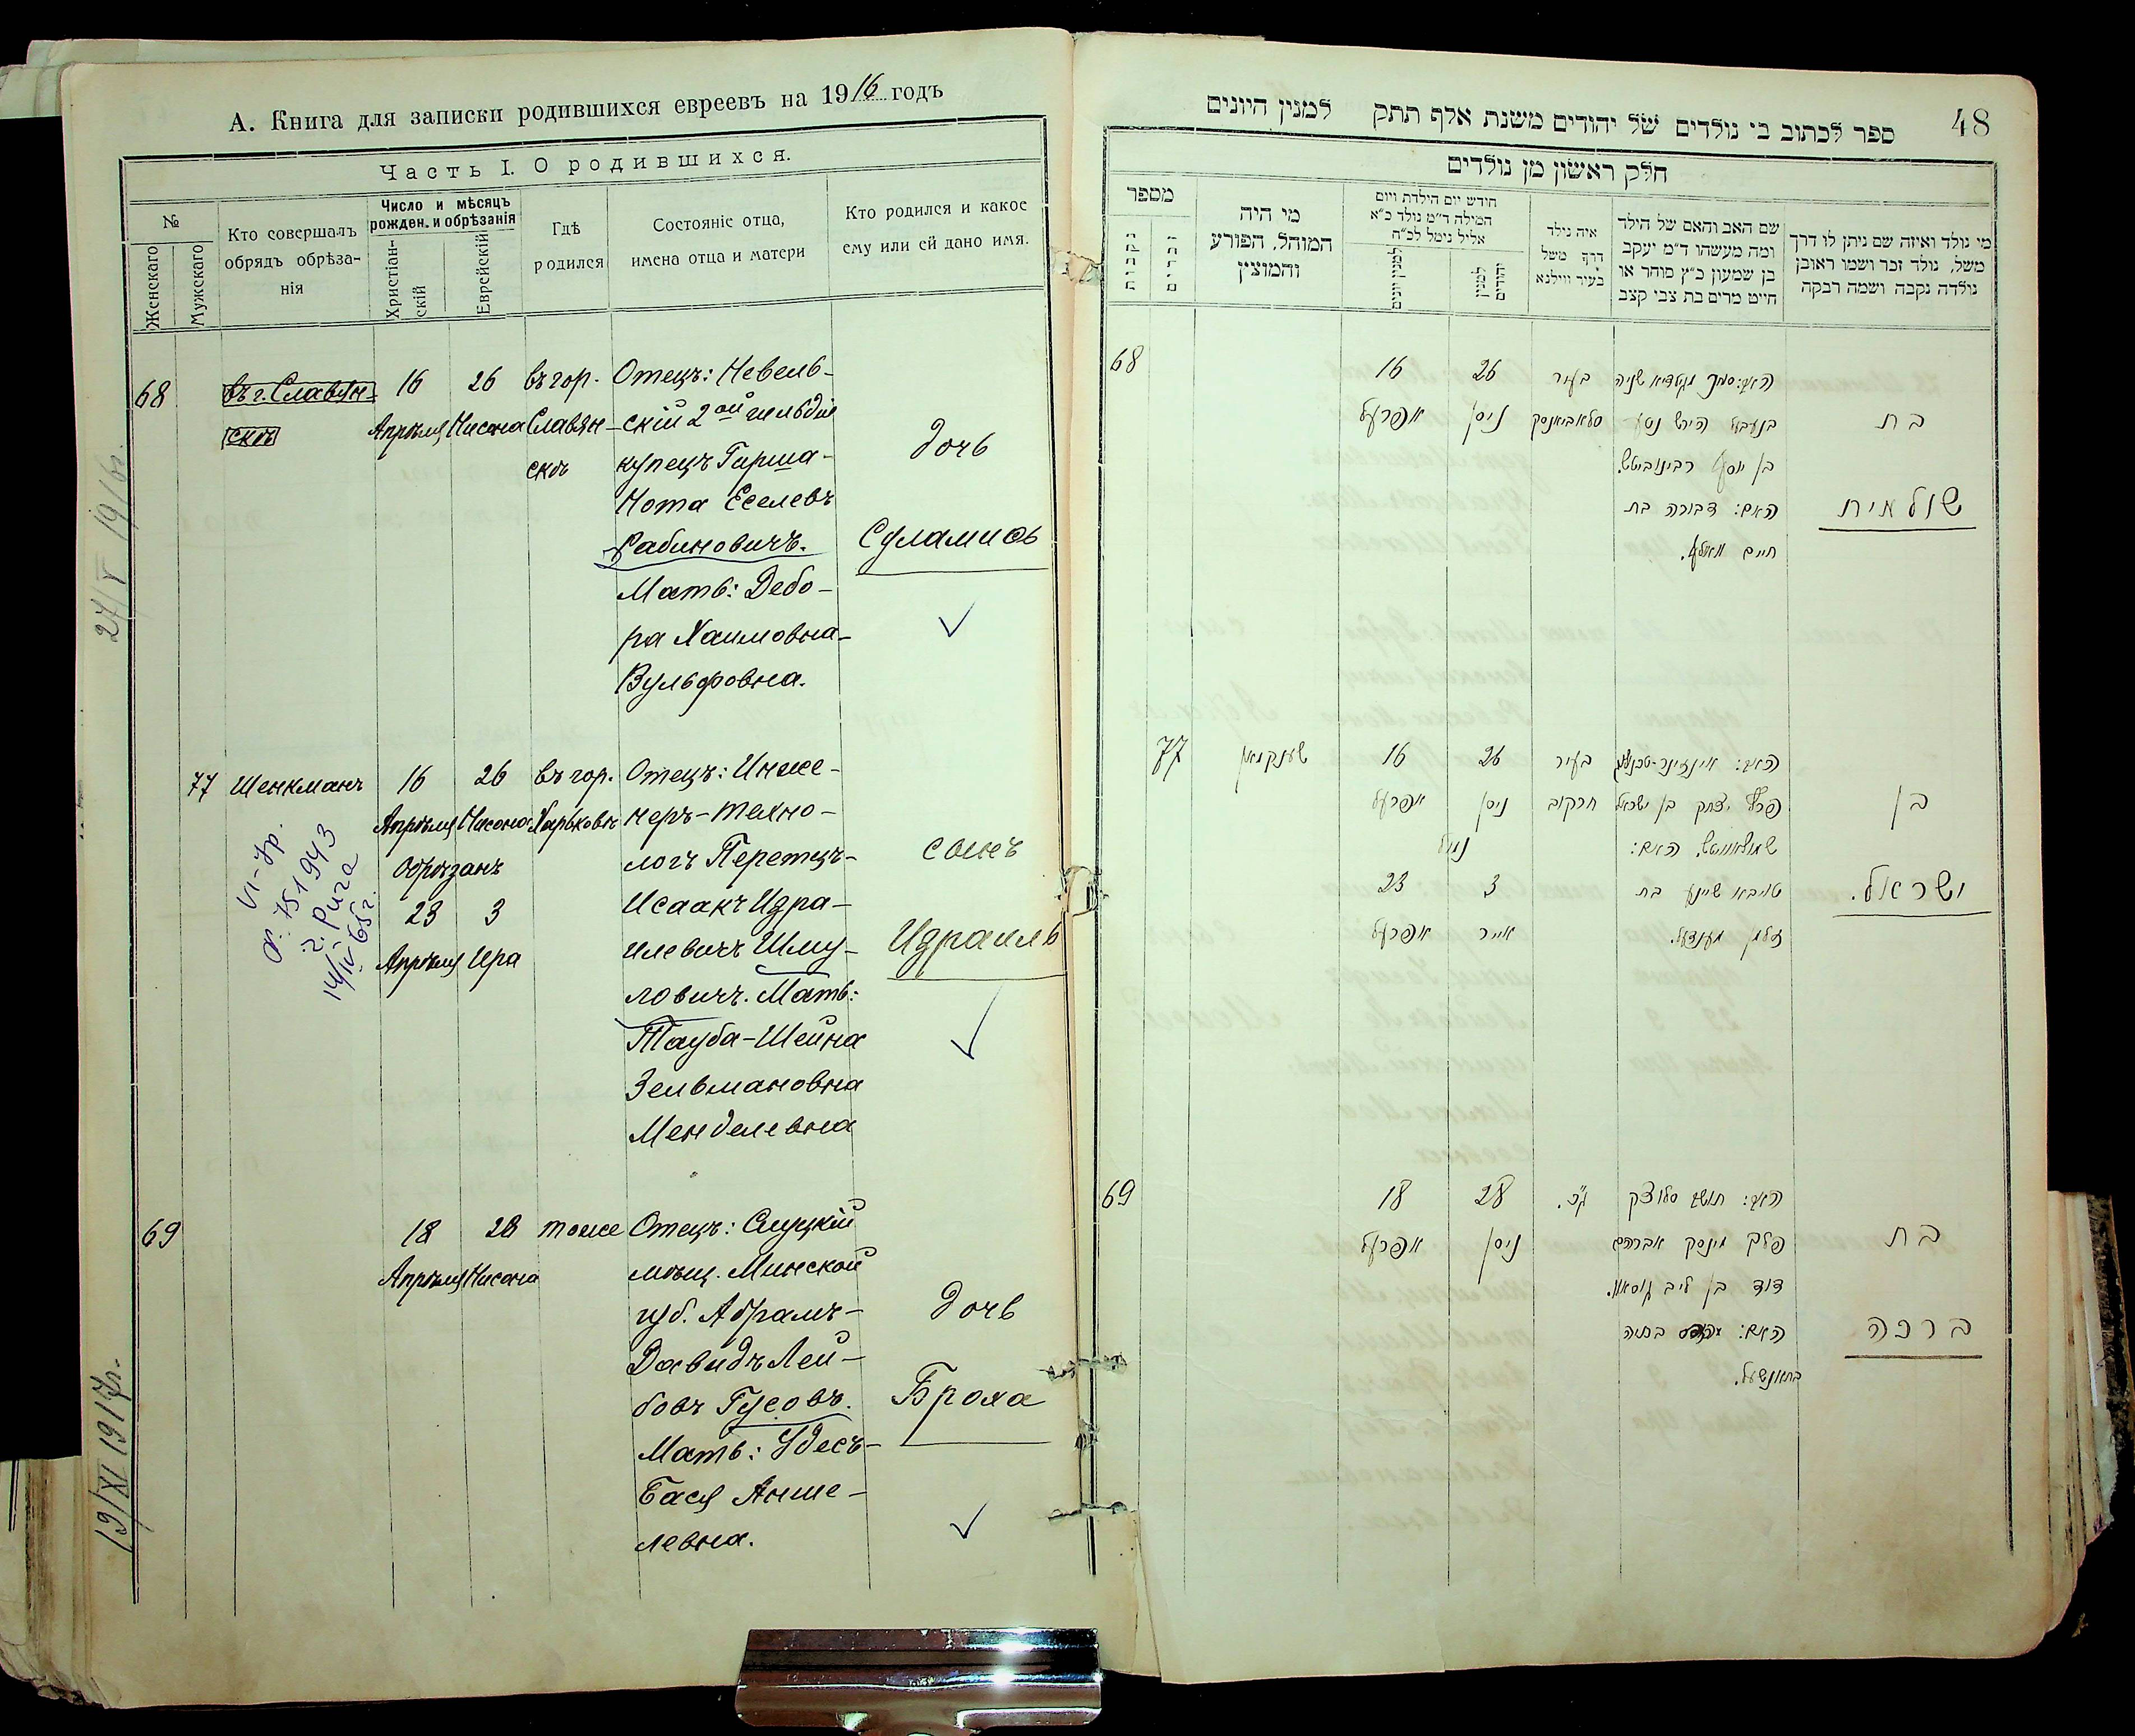 А. Книга для записки родившихся евреевъ на 1916 годъ
Часть I. О родившихся.
№
Женскаго
Мужескаго
Кто совершалъ
обрядъ обрѣза-
нія
Число и мѣсяцъ
рожден. и обрѣзанія
Христіан-
скій
Еврейскій
Гдѣ
родился
Состояніе отца,
имена отца и матери
Кто родился и какое
ему или ей дано имя.
68
въ г. Славян-
скѣ
16
Апрѣля
26
Нисона
въ гор.
Славян-
скѣ
Отецъ: Невель-
скій 2ой гильдіи
купецъ Гирша-
Нота Еселевъ
Рабиновичъ.
Мать: Дебо-
ра Хаимовна-
Вульфовна.
дочь
Суламиѳь
27/V 1916г.
77
Шенкманъ
16
Апрѣля
26
Нисона
Обрѣзанъ
23
Апрѣля
3
Ира
въ гор.
Харьковѣ
Отецъ: Инже-
неръ-техно-
логъ Перетцъ-
Исаакъ Изра-
илевичъ Шму-
ловичъ. Мать:
Тауба-Шейна
Зельмановна
Менделевна
сынъ
Израиль
VI-Jр.
№ 751943
г. Рига
14/IV 65г.
69
18
Апрѣля
28
Нисона
тоже
Отецъ: Слуцкій
мѣщ. Минской
губ. Абрамъ-
Давидъ Лей-
бовъ Гусовъ.
Мать: Удесъ-
Бася Анше-
левна.
дочь
Броха
19/XI 1917г.
48
ספר לכתוב בי נולדים של יהודים משנת אלף תתק למנין היונים
חלק ראשון מן נולדים
מספר
נקבות
זכרים
מי היה
המוהל, הפורע
והמוצין
חודש יום הילדת ויום
המילה ד״מ נולד כ״א
אליל נימל לכ״ח
למנין יונים
למנין
יהודים
איה נילד
דרך משל
בעיר ווילנא
שם האב והאם של הילד
ומה מעשהו ד״מ יעקב
בן שמעון כ״ץ סוחר או
חייט מרים בת צבי קצב
מי נולד ואיזה שם ניתן לו דרך
משל, נולד זכר ושמו ראובן
נולדה נקבה ושמה רבקה
68
16
אפרעל
26
ניסן
בעיר
סלאביאנסק
בן יוסף רבינוביטש.
האם: דבורה בת
חיים וואלף.
בת
שולמית
77
שענקמאן
16
אפרעל
26
ניסן
23
אפרעל
3
אייר
בעיר
חרקוב
פרץ יצחק בן ישראל
שמולאוויטש. האם:
טויבא שיינע בת
זלמן מענדעל.
בן
ישראל.
69
18
אפרעל
28
ניסן
האב: תושב סלוצק
פלך מינסק אברהם
דוד בן ליב גוסאוו.
בת
ברכה